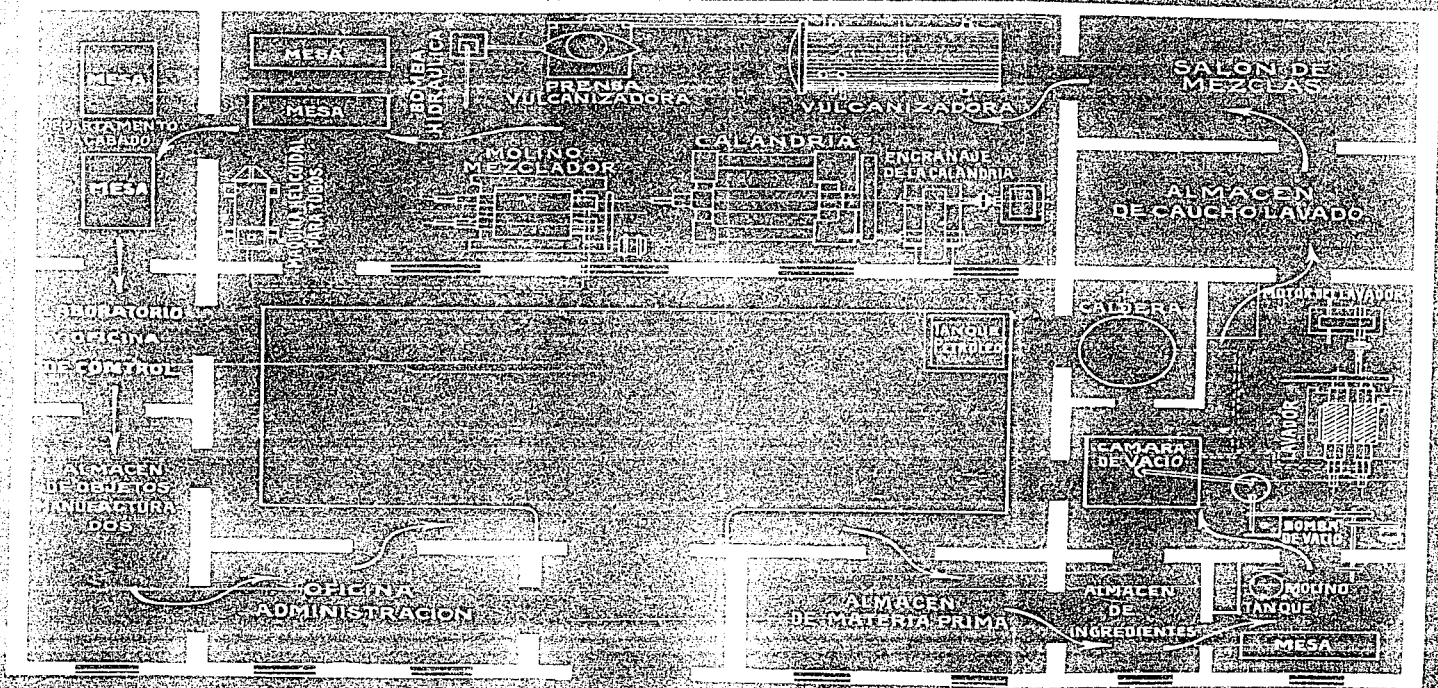 MESA
DEPARTAMENTO
ACABADO
MESA
MESA
MESA
BOMBA
HIDRAULICA
PRENSA
VULCANIZADORA
VULCANIZADORA
SALON DE
MEZCLAS
MAQUINA HELICOIDAL
PARA TUBOS
MOLINO
MEZCLADOR
CALANDRIA
ENGRANAJE
DE LA CALANDRIA
ALMACEN
DE CAUCHO LAVADO
LABORATORIO
Y OFICINA
DE CONTROL
TANQUE
PETROLEO
CALDERA
MOTOR DEL LAVADOR
LAVADOR
CAMARA
DE VACIO
BOMBA
DE VACIO
ALMACEN
DE OBJETOS
MANUFACTURA-
DOS
OFICINA
ADMINISTRACION
ALMACEN
DE MATERIA PRIMA
ALMACEN
DE
INGREDIENTES
MOLINO
TANQUE
MESA